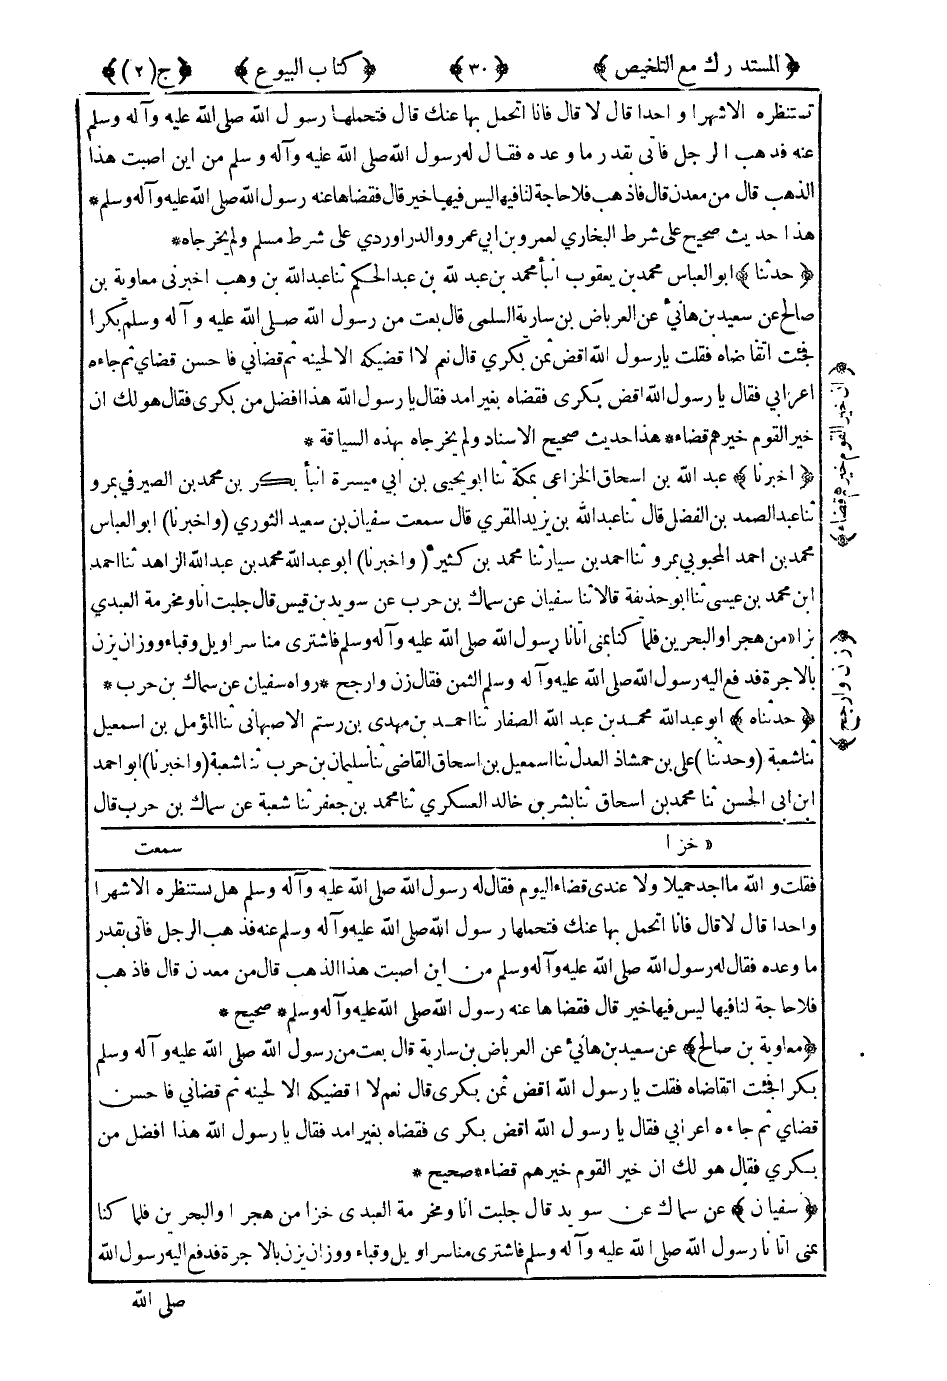 ﴿المستدرك مع التلخيص﴾ ﴿٣٠﴾ ﴿كتاب البيوع﴾ ﴿ج(٢)﴾
تستنظره الا شهرا واحدا قال لا قال فانا اتحمل بها عنك قال فتحملها رسول الله صلى الله عليه وآله وسلم
عنه فذهب الرجل فاتى بقدر ما وعده فقال له رسول الله صلى الله عليه وآله وسلم من اين اصبت هذا
الذهب قال من معدن قال فاذهب فلا حاجة لنا فيها ليس فيها خير قال فقضاها عنه رسول الله صلى الله عليه وآله وسلم*
هذا حديث صحيح على شرط البخاري لعمرو بن ابي عمرو والدراوردي على شرط مسلم ولم يخرجاه*
﴿حدثنا﴾ ابو العباس محمد بن يعقوب انبأ محمد بن عبد لله بن عبد الحكم ثنا عبد الله بن وهب اخبرني معاوية بن
صالح عن سعيد بن هانئ عن العرباض بن سارية السلمى قال بعت من رسول الله صلى الله عليه وآله وسلم بكرا
فجئت اتقاضاه فقلت يا رسول الله اقض ثمن بكري قال نعم لا اقضيكه الا لحينه ثم قضاني فاحسن قضاي ثم جاءه
اعرابي فقال يا رسول الله اقض بكرى فقضاه بغير امد فقال يا رسول الله هذا افضل من بكرى فقال هو لك ان
خير القوم خيرهم قضاء* هذا حديث صحيح الاسناد ولم يخرجاه بهذه السياقة *
﴿اخبرنا﴾ عبد الله بن اسحاق الخزاعى بمكة ثنا ابو يحيى بن ابي ميسرة انبأ بكر بن محمد بن الصيرفي بمرو
ثنا عبد الصمد بن الفضل قال ثنا عبد الله بن يزيد المقري قال سمعت سفيان بن سعيد الثوري (واخبرنا) ابو العباس
محمد بن احمد المحبوبي بمرو ثنا احمد بن سيار ثنا محمد بن كثير (واخبرنا) ابو عبد الله محمد بن عبد الله الزاهد ثنا احمد
ابن محمد بن عيسى ثنا ابو حذيفة قالا ثنا سفيان عن سماك بن حرب عن سويد بن قيس قال جلبت انا ومخرمة العبدي
بزا« من هجر او البحرين فلما كنا بمنى اتانا رسول الله صلى الله عليه وآله وسلم فاشترى منا سراويل وقباء ووزان يزن
بالاجرة فدفع اليه رسول الله صلى الله عليه وآله وسلم الثمن فقال زن وارجح *رواه سفيان عن سماك بن حرب *
﴿حدثناه﴾ ابو عبد الله محمد بن عبد الله الصفار ثنا احمد بن مهدى بن رستم الاصبهاني ثنا المؤمل بن اسمعيل
ثنا شعبة (وحدثنا) على بن حمشاذ العدل ثنا اسمعيل بن اسحاق القاضى ثنا سليمان بن حرب ثنا شعبة (واخبرنا) ابو احمد
ابن ابى الحسن ثنا محمد بن اسحاق ثنا بشر بن خالد العسكري ثنا محمد بن جعفر ثنا شعبة عن سماك بن حرب قال
﴿ان خير القوم خيرهم قضاء﴾
﴿زن وارجح﴾
« خزا سمعت
فقلت والله ما اجد حميلا ولا عندى قضاء اليوم فقال له رسول الله صلى الله عليه وآله وسلم هل تستنظره الا شهرا
واحدا قال لا قال فانا اتحمل بها عنك فتحملها رسول الله صلى الله عليه وآله وسلم عنه فذهب الرجل فاتى بقدر
ما وعده فقال له رسول الله صلى الله عليه وآله وسلم من اين اصبت هذا الذهب قال من معدن قال فاذهب
فلا حاجة لنا فيها ليس فيها خير قال فقضاها عنه رسول الله صلى الله عليه وآله وسلم* صحيح *
﴿معاوية بن صالح﴾ عن سعيد بن هانئ عن العرباض بن سارية قال بعت من رسول الله صلى الله عليه وآله وسلم
بكرا فجئت اتقاضاه فقلت يا رسول الله اقض ثمن بكرى قال نعم لا اقضيكه الا لحينه ثم قضاني فاحسن
قضاي ثم جاءه اعرابي فقال يا رسول الله اقض بكرى فقضاه بغير امد فقال يا رسول الله هذا افضل من
بكري فقال هو لك ان خير القوم خيرهم قضاء*صحيح *
﴿سفيان﴾ عن سماك عن سويد قال جلبت انا ومخرمة العبدى خزا من هجر او البحرين فلما كنا
بمنى اتانا رسول الله صلى الله عليه وآله وسلم فاشترى منا سراويل وقباء ووزان يزن بالاجرة فدفع اليه رسول الله
صلى الله